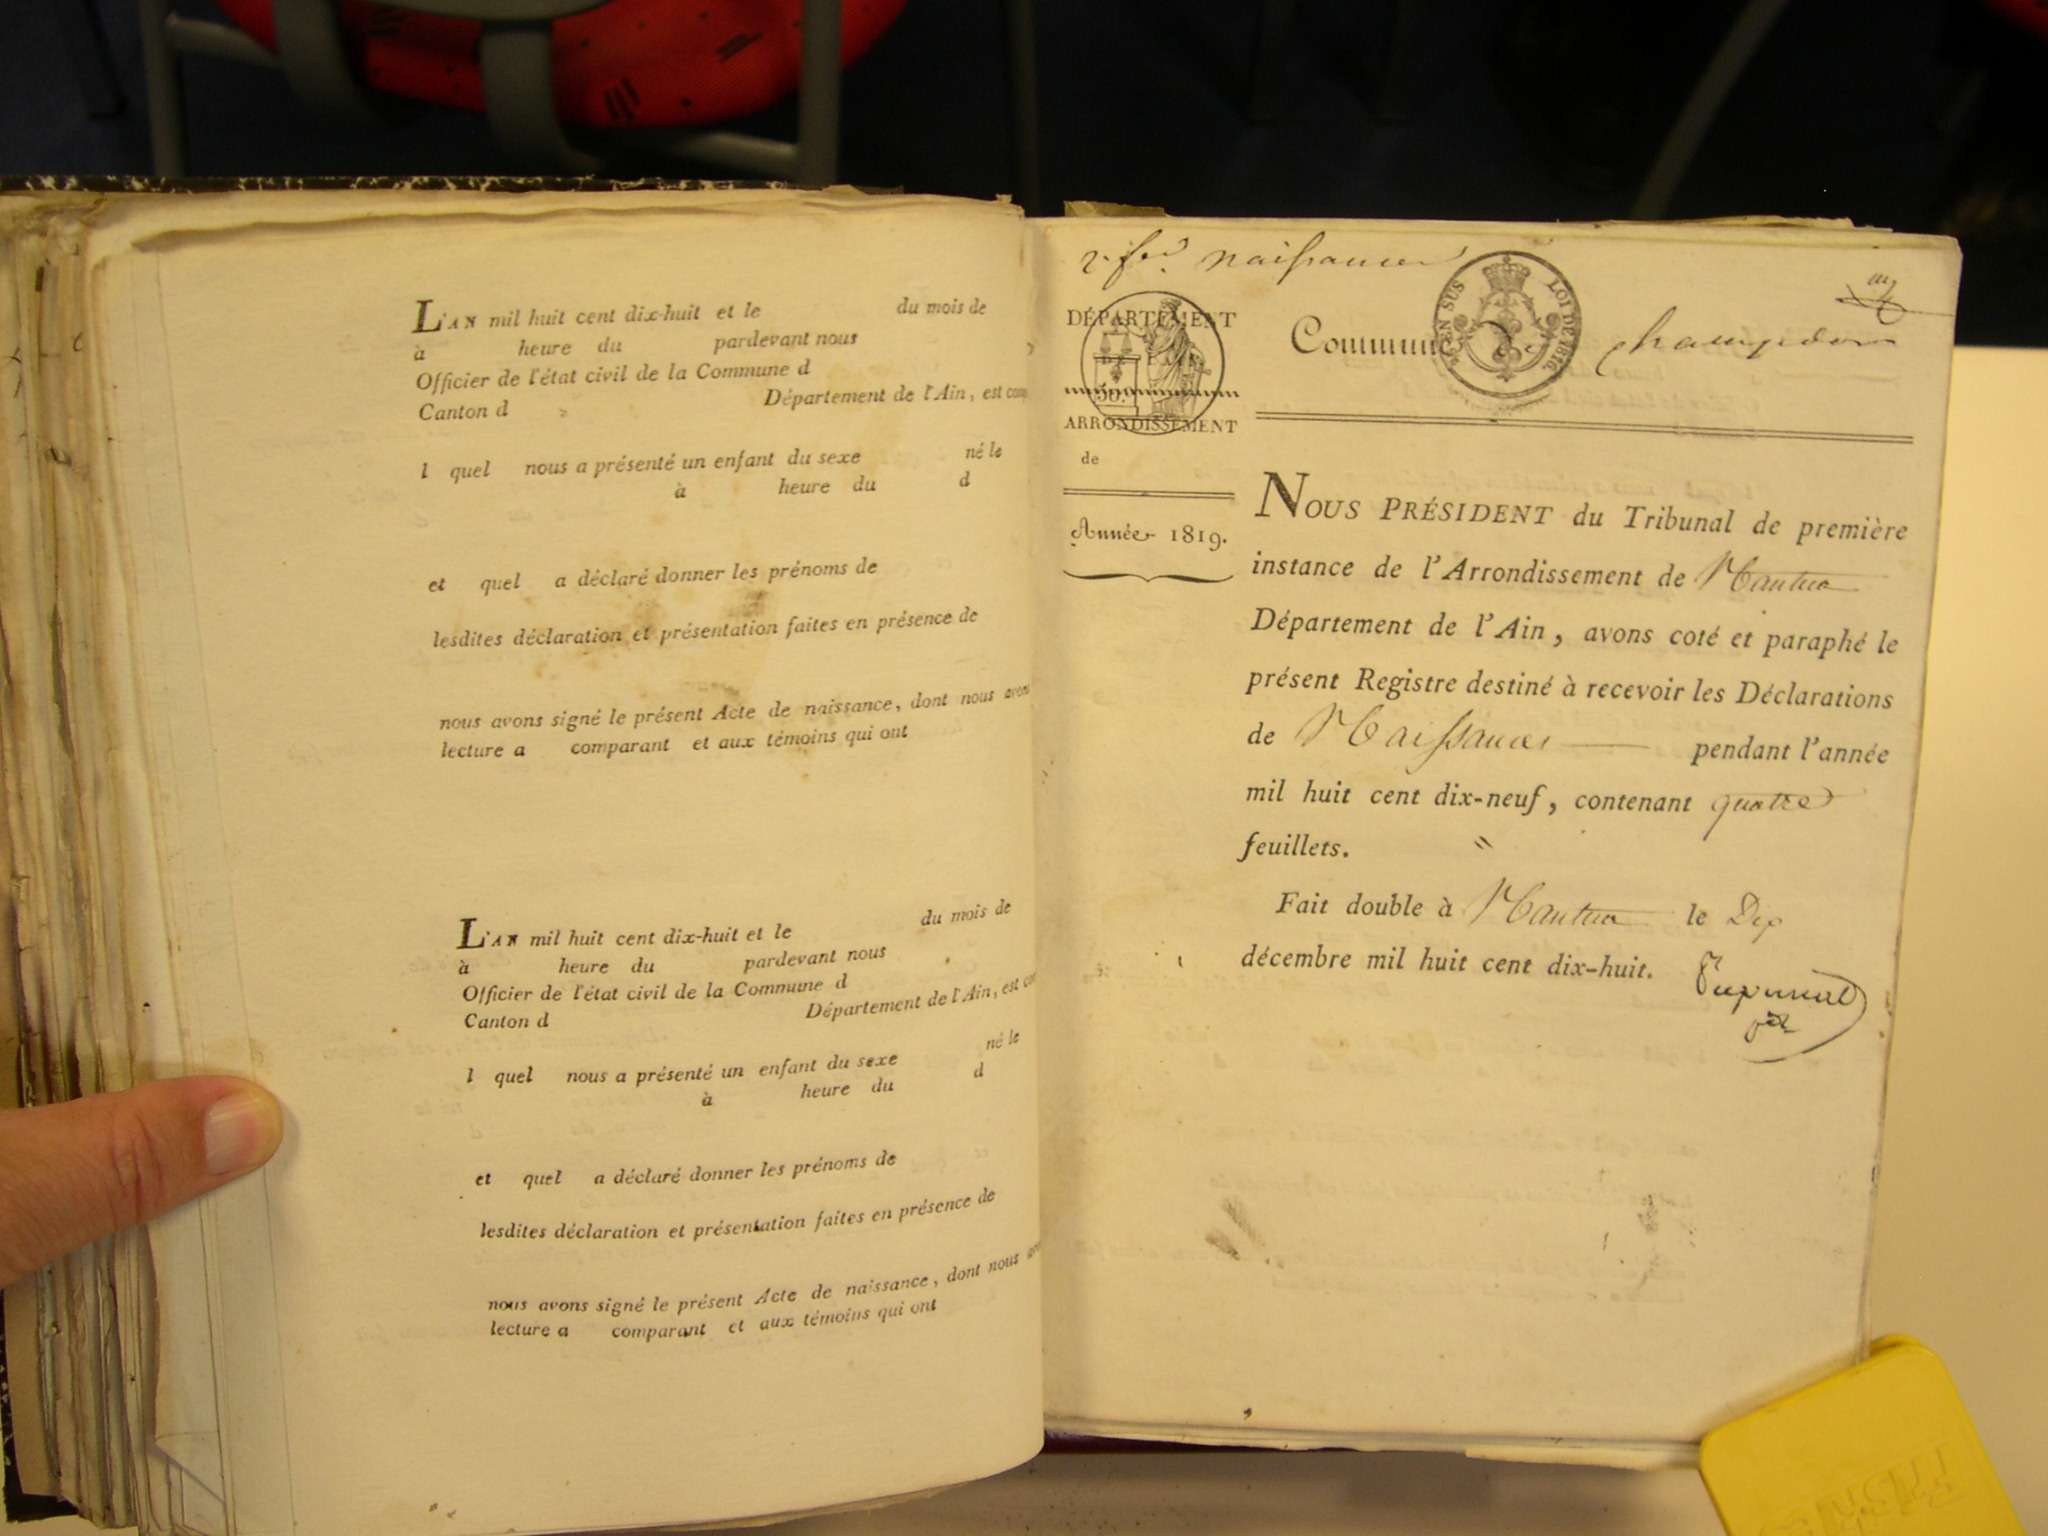 L'AN mil huit cent dix-huit et le du mois de
à heure du pardevant nous
Officier de l'état civil de la Commune d
Canton d Département de l'Ain, est com
l quel nous a présenté un enfant du sexe né le
à heure du d
et quel a déclaré donner les prénoms de
lesdites déclaration et présentation faites en présence de
nous avons signé le présent Acte de naissance, dont nous avons
lecture a comparant et aux témoins qui ont
L'AN mil huit cent dix-huit et le du mois de
à heure du pardevant nous
Officier de l'état civil de la Commune d
Canton d Département de l'Ain, est com
l quel nous a présenté un enfant du sexe né le
à heure du d
et quel a déclaré donner les prénoms de
lesdites déclaration et présentation faites en présence de
nous avons signé le présent Acte de naissance, dont nous avo
lecture a comparant et aux témoins qui ont
naissances
EN SUS LOI DE 1816
Commune de Champdor
DÉPARTEMENT
DE L'AIN
ARRONDISSEMENT
de
Année 1819.
NOUS PRÉSIDENT du Tribunal de première
instance de l'Arrondissement de Nantua
Département de l'Ain, avons coté et paraphé le
présent Registre destiné à recevoir les Déclarations
de Naissances pendant l'année
mil huit cent dix-neuf, contenant quatre
feuillets. "
Fait double à Nantua le Dix
décembre mil huit cent dix-huit.